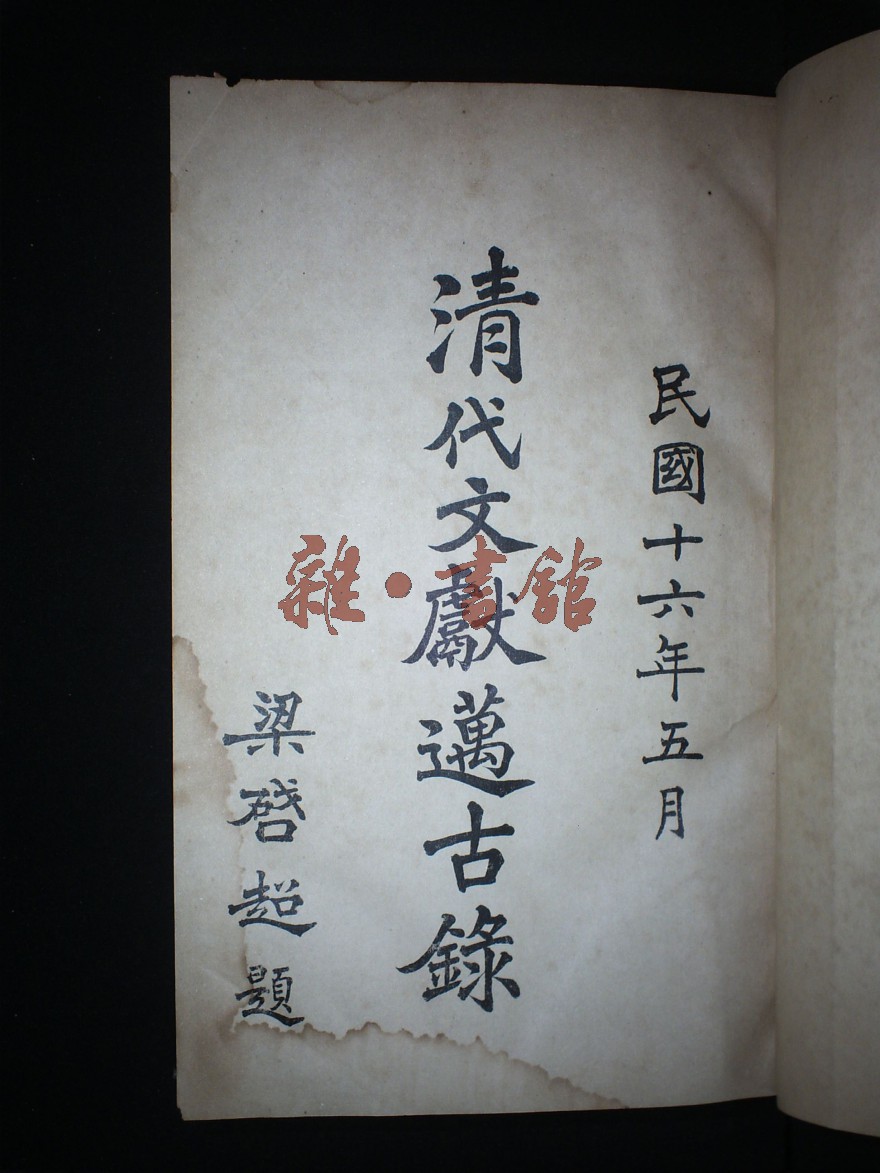 民國十六年五月
清代文獻邁古錄
梁啓超題
雜·書館